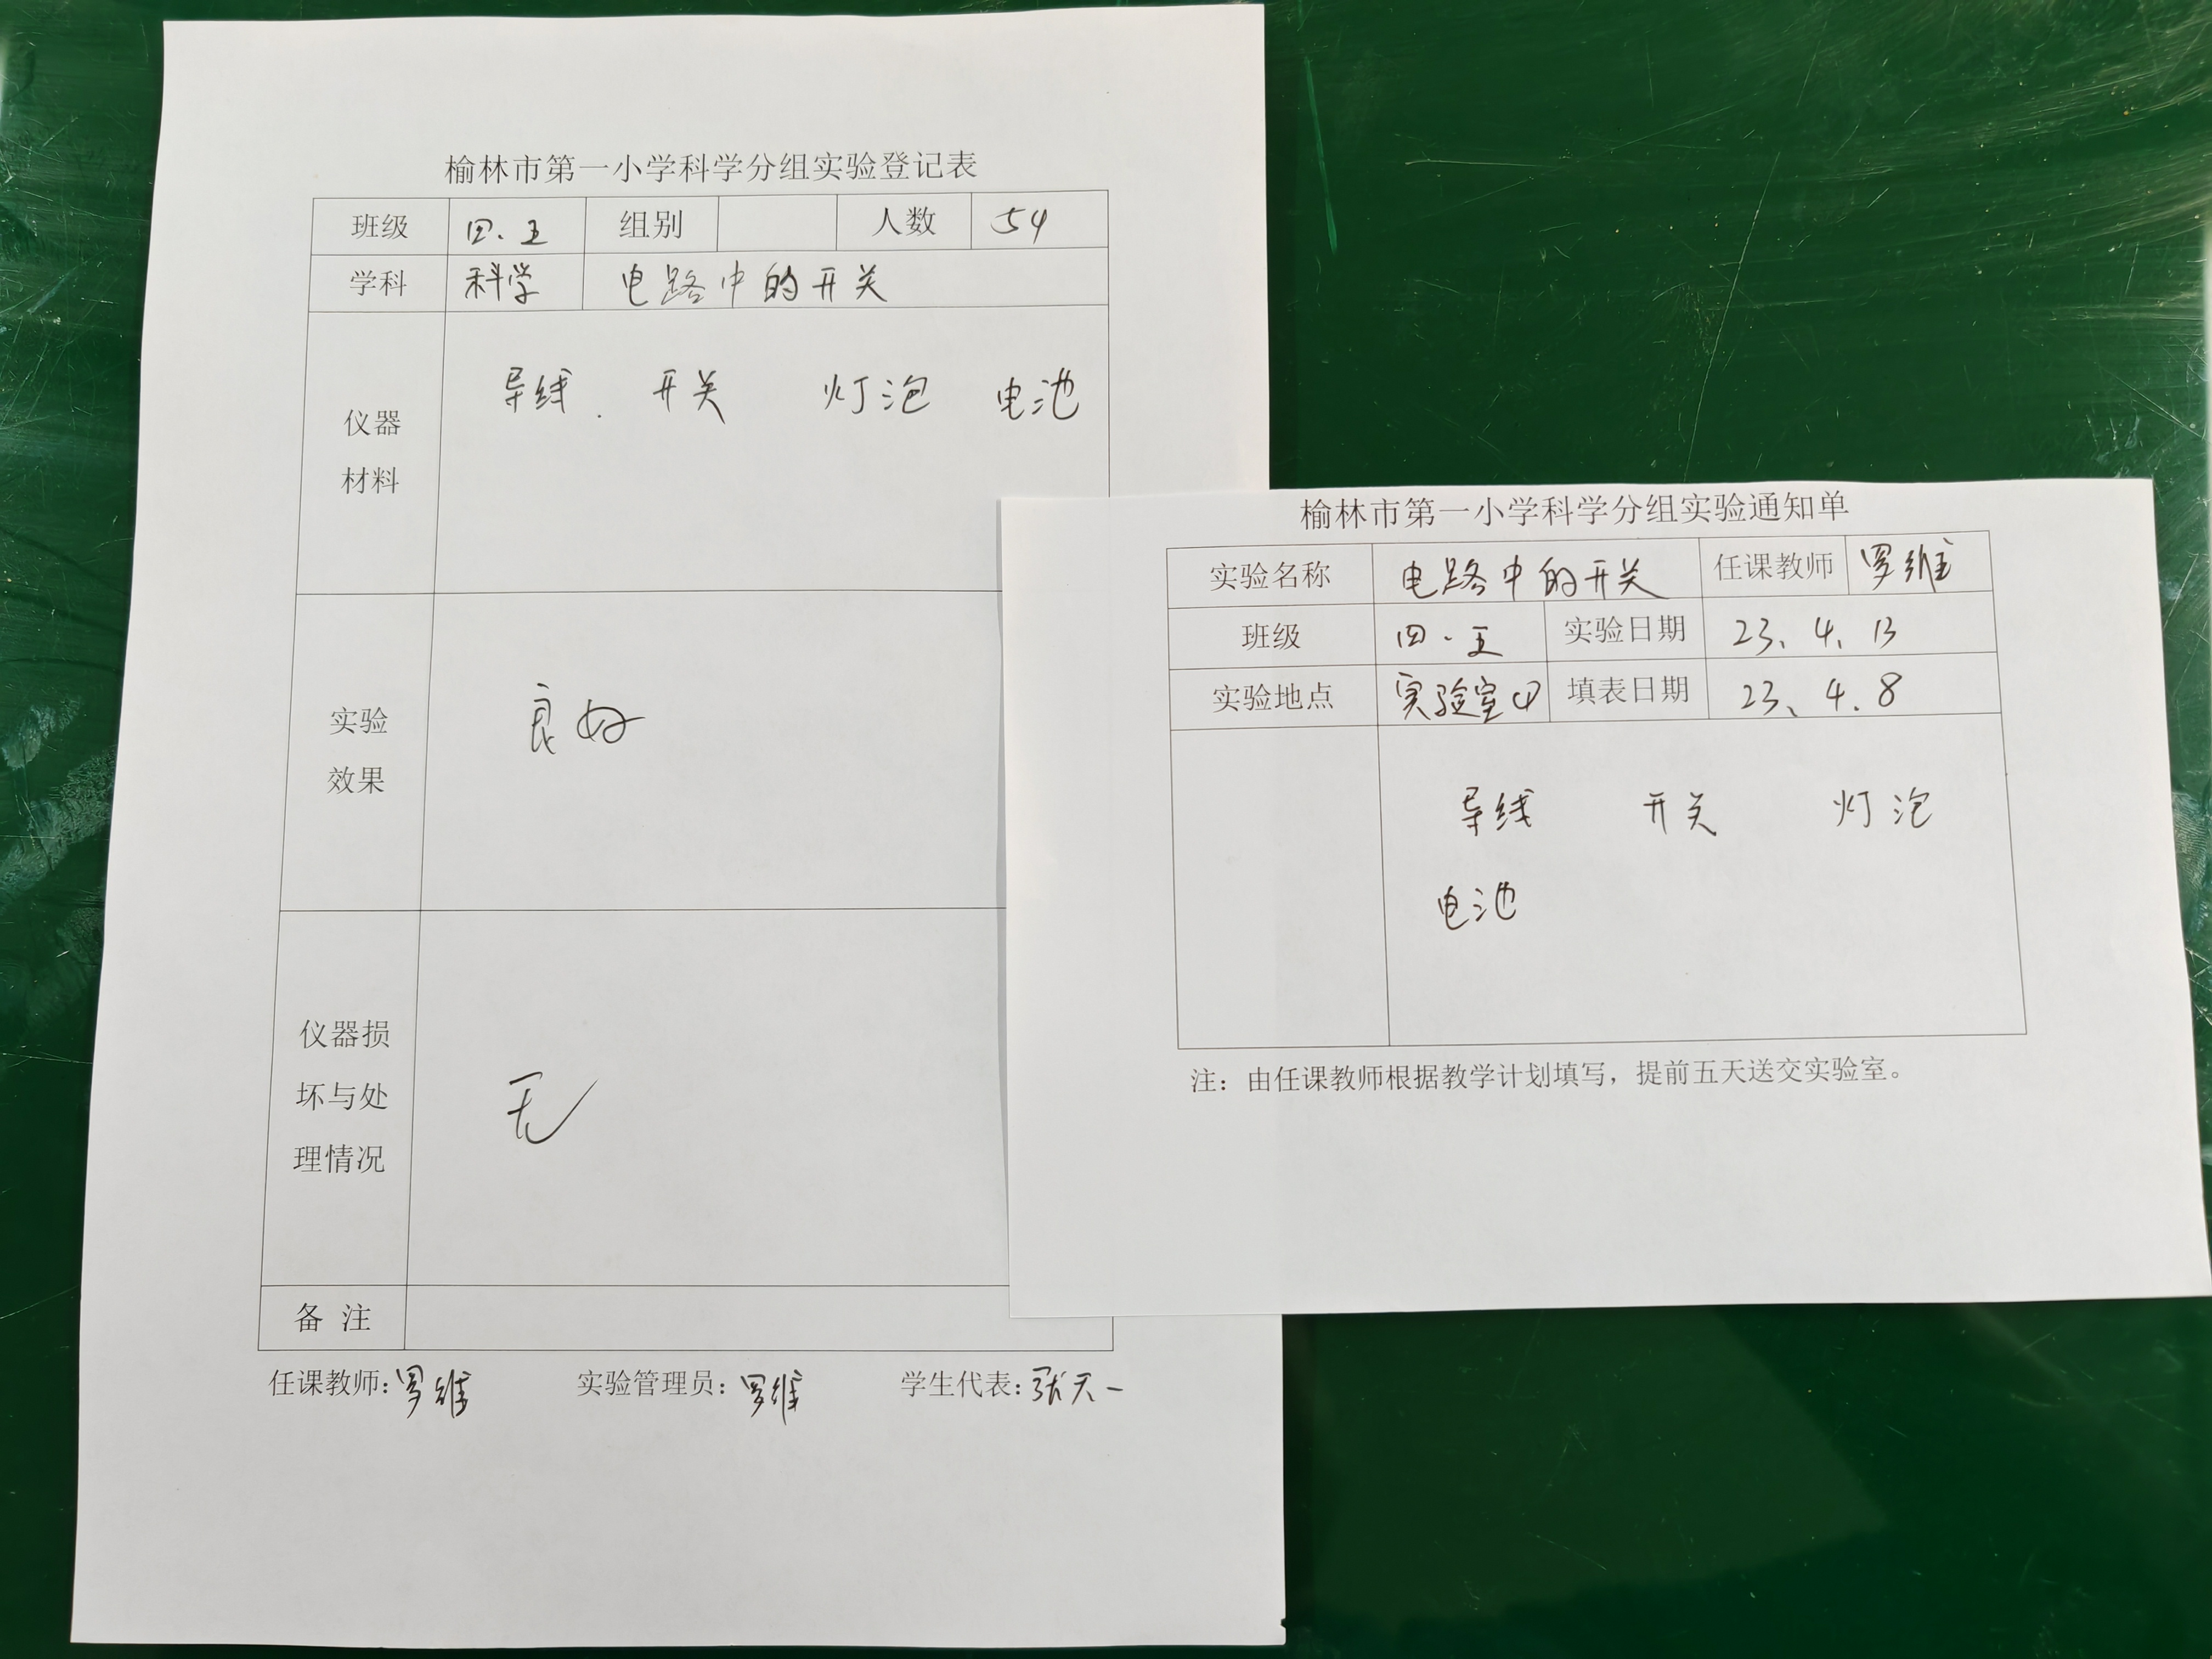 榆林市第一小学科学分组实验登记表
班级 四、五 组别 人数 54
学科 科学 电路中的开关
仪器
材料
导线 . 开关 灯泡 电池
实验
效果
良好
仪器损
坏与处
理情况
无
备 注
任课教师:罗维 实验管理员:罗维 学生代表:张天一
榆林市第一小学科学分组实验通知单
实验名称 电路中的开关 任课教师 罗维
班级 四、五 实验日期 23、4、13
实验地点 实验室 填表日期 23、4.8
导线 开关 灯泡
电池
注：由任课教师根据教学计划填写，提前五天送交实验室。